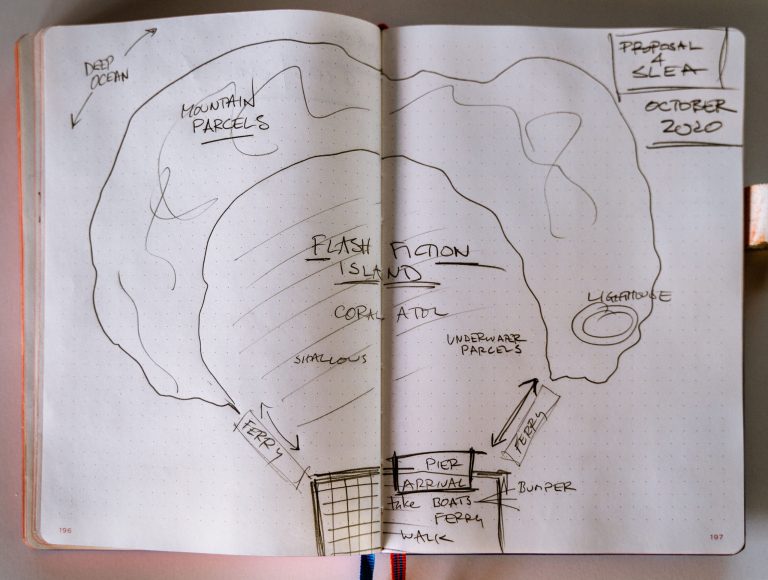 DEEP
OCEAN
PROPOSAL
4
SLEA
OCTOBER
2020
MOUNTAIN
PARCELS
FLASH FICTION
ISLAND
CORAL ATOL
LIGHTHOUSE
SHALLOWS
UNDERWATER
PARCELS
FERRY
FERRY
PIER
ARRIVAL
take BOATS
FERRY
WALK
BUMPER
196
197